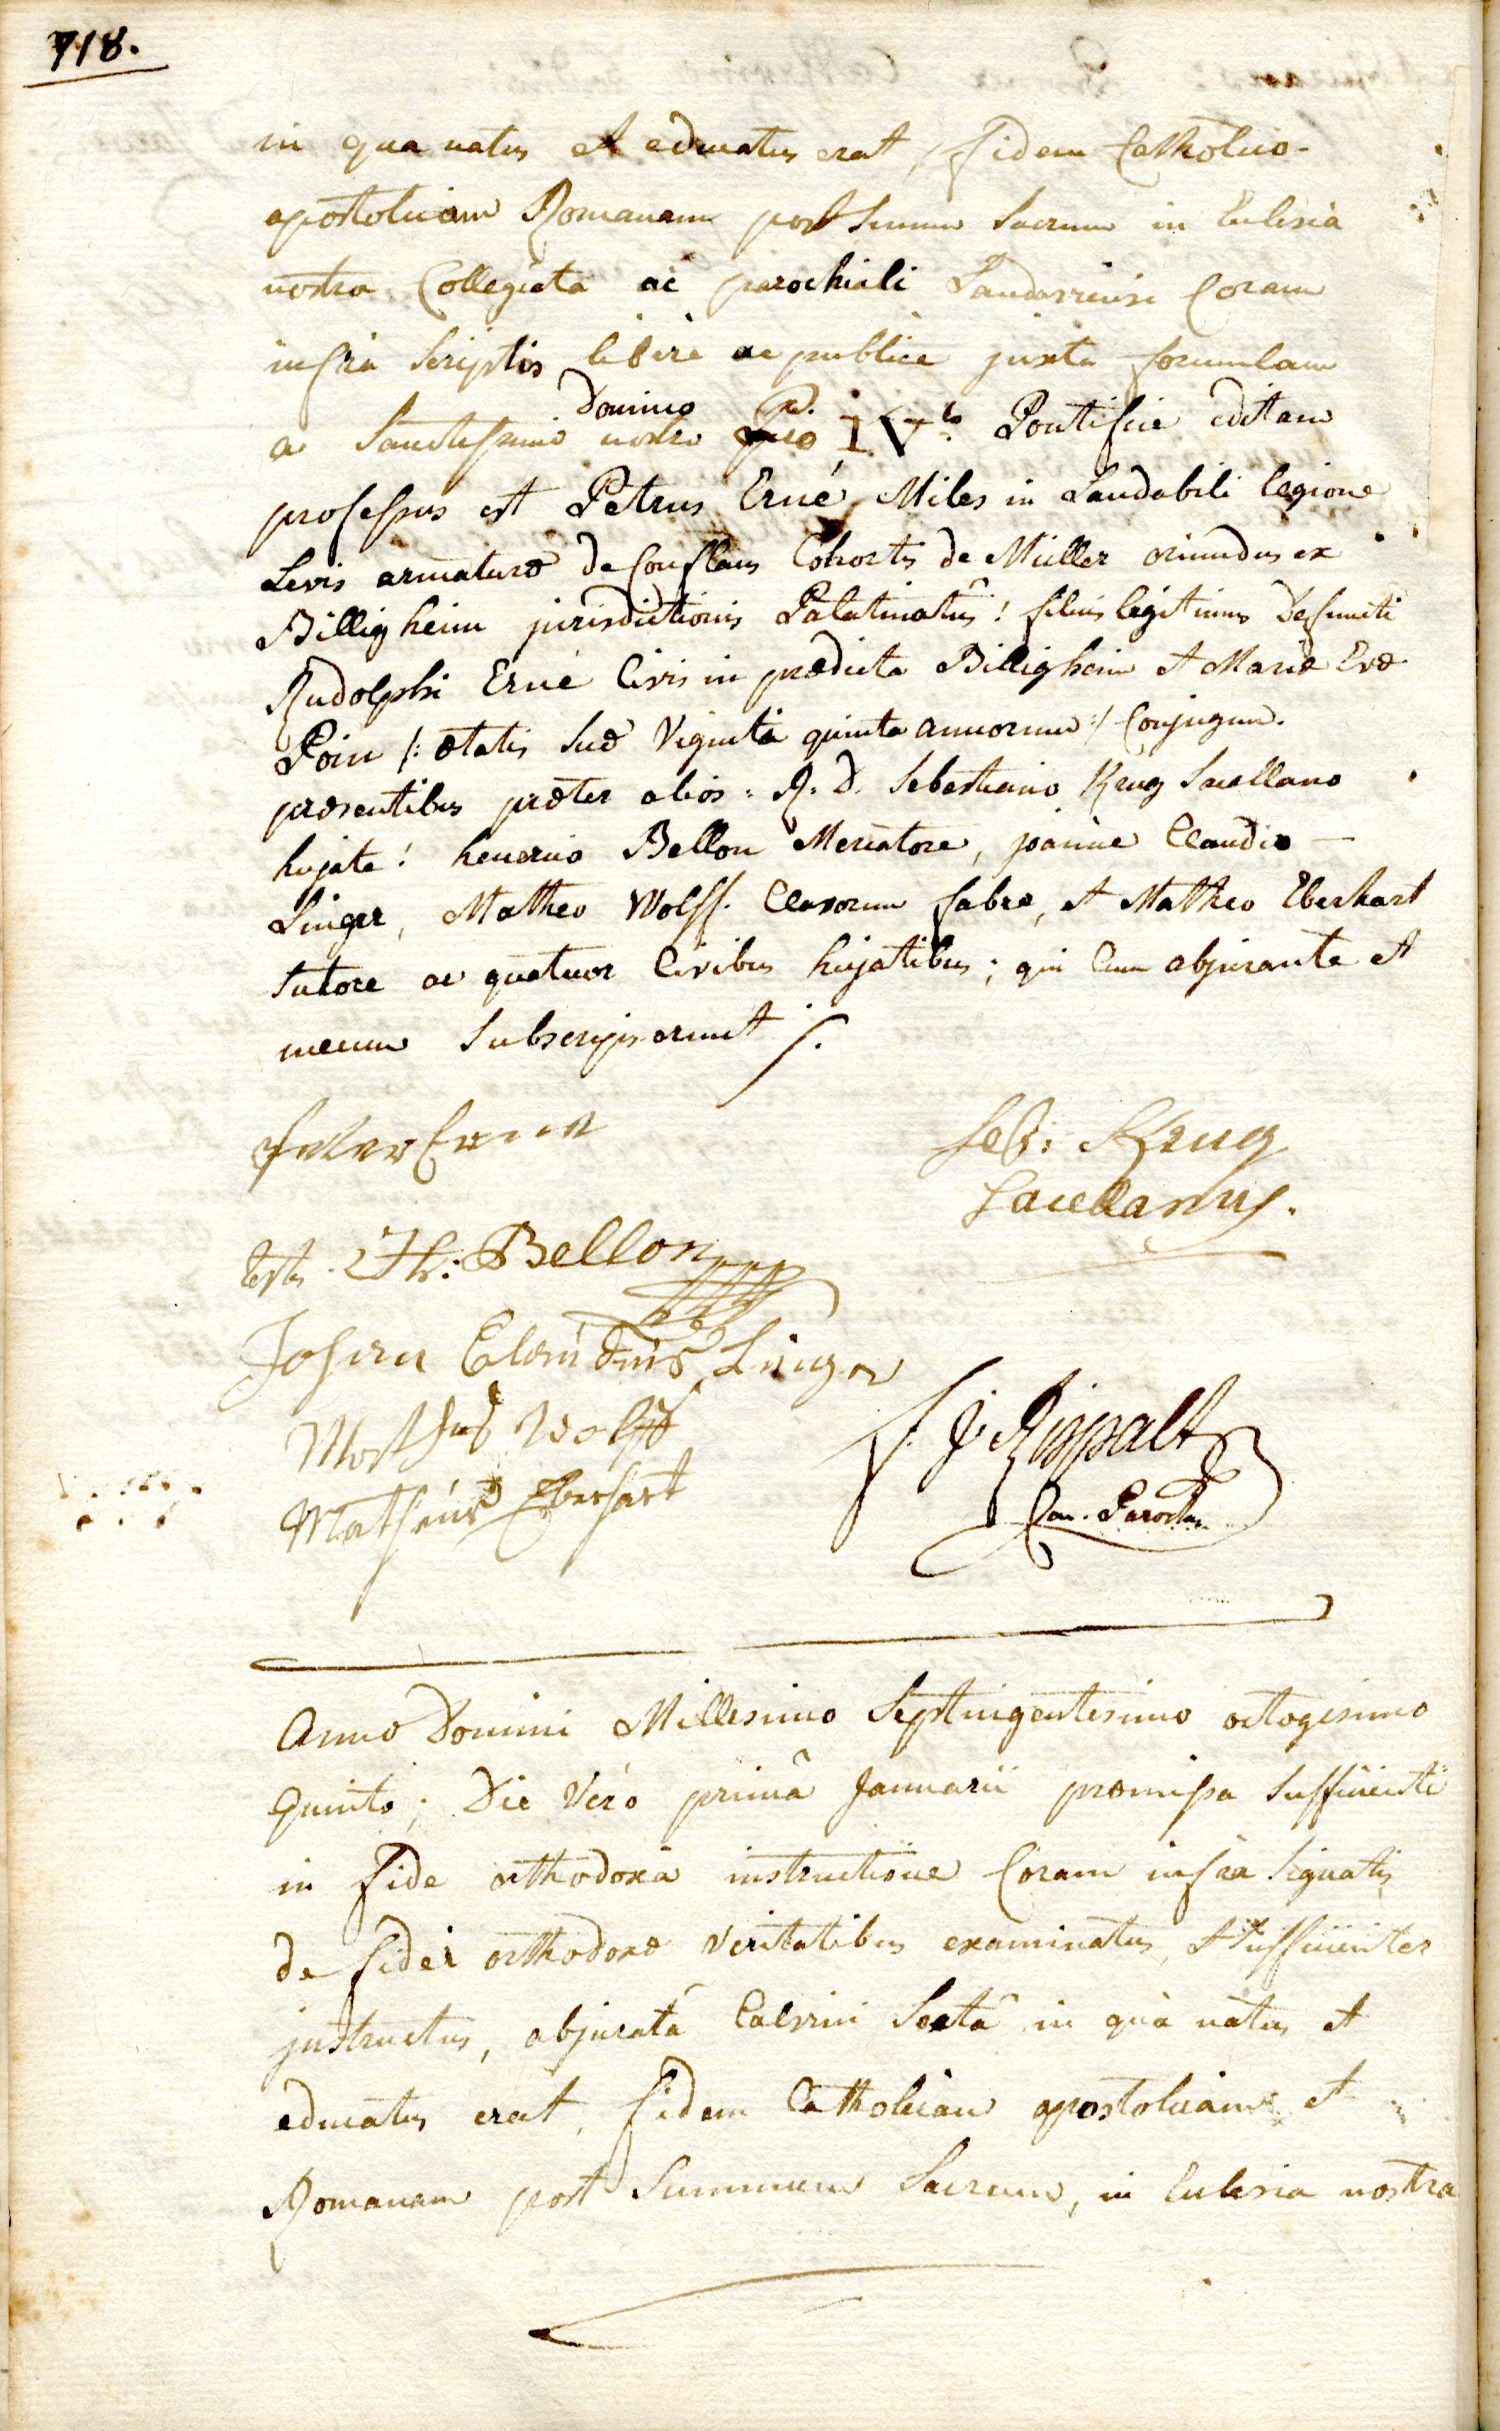 718.
in qua natus et educatus erat, fidem Catholico-
apostolicam Romanam post Summum Sacrum in Eclesia
nostra Collegiata ac parochiali Landaviensi Coram
infra Scriptis liberè ac publice juxta formulam
a Sanctissimo Domino nostro Pio IVto Pontifice editam
professus est Petrus Erné, Miles in Laudabili legione
Levis armaturæ de Conflans Cohortis de Müller oriundus ex
Billigheim jurisdictionis Palatinatûs! filius legitimus Defuncti
Rudolphi Erné Civis in prædicta Billigheim et Mariæ Evæ
Poin /: ætatis Suæ Viginti quinta annorum :/ Conjugum.
præsentibus præter alios: R. D. Sebastiano Krug Sacellano
hujate! henerico Bellon Mercatore, joanne Claudio —
Linger, Matheo Wolff. Clavorum fabro, et Matheo Eberhart
Sutore ac quatuor Civibus hujatibus; qui Cum abjurante et
mecum Subscripserunt /.
Peter Erne
Seb: Krug
Sacellanus.
testis H: Bellon
Johan Claudius Linger
Mathes Wolff
Matheus Eberhart
Rippalt
Can. Parochus
Anno Domini Millesimo Septingentesimo octogesimo
Quinto; Die Vero primâ Januarii præmissa Sufficienti
in fide orthodoxa instructione Coram infra Signatis
de fidei orthodoxæ Veritatibus examinatus, et Sufficienter
jnstructus, abjuratâ Calvini Sectâ in quâ natus et
educatus erat, fidem Catholicam apostolicam et
Romanam post Summum Sacrum, in Eclesia nostra